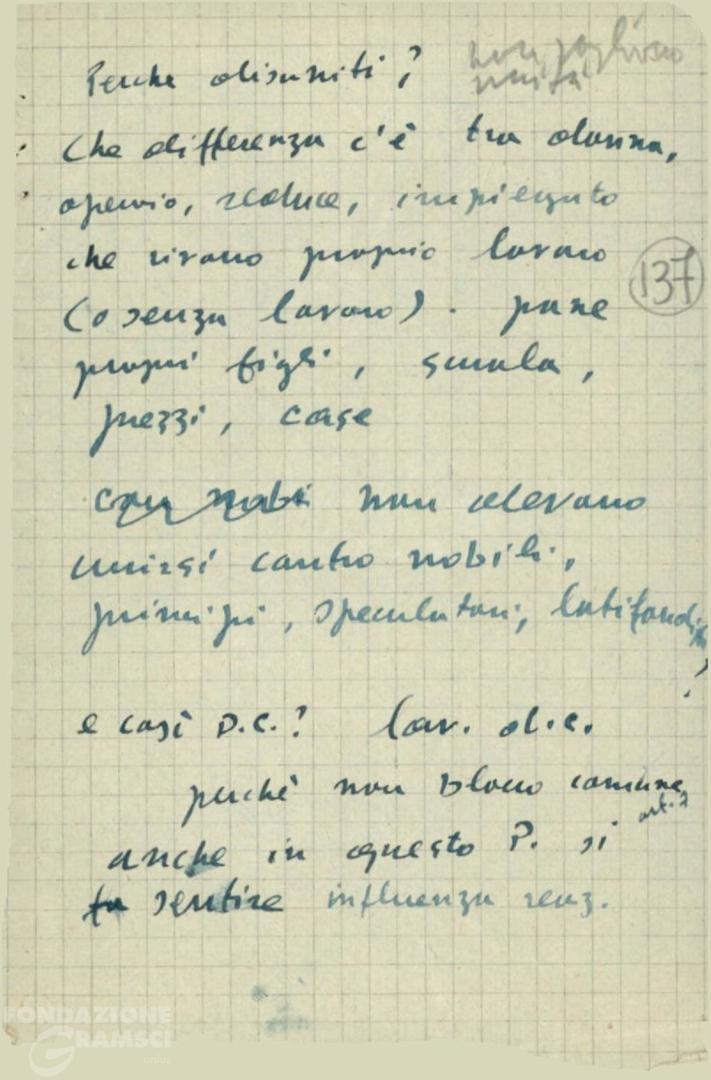 Perche disuniti? non vogliono
unità
Che differenza c'è tra donna,
operaio, reduce, impiegato
che vivono proprio lavoro
(o senza lavoro). pane
propri figli, scuola,
prezzi, case
137
non devono
unirsi contro nobili,
principi, speculatori, latifondisti
?
e così D.C.? lav. d.c.
perchè non blocco comune
anche in questo P. si
fa sentire influenza reaz.
FONDAZIONE
GRAMSCI
onlus